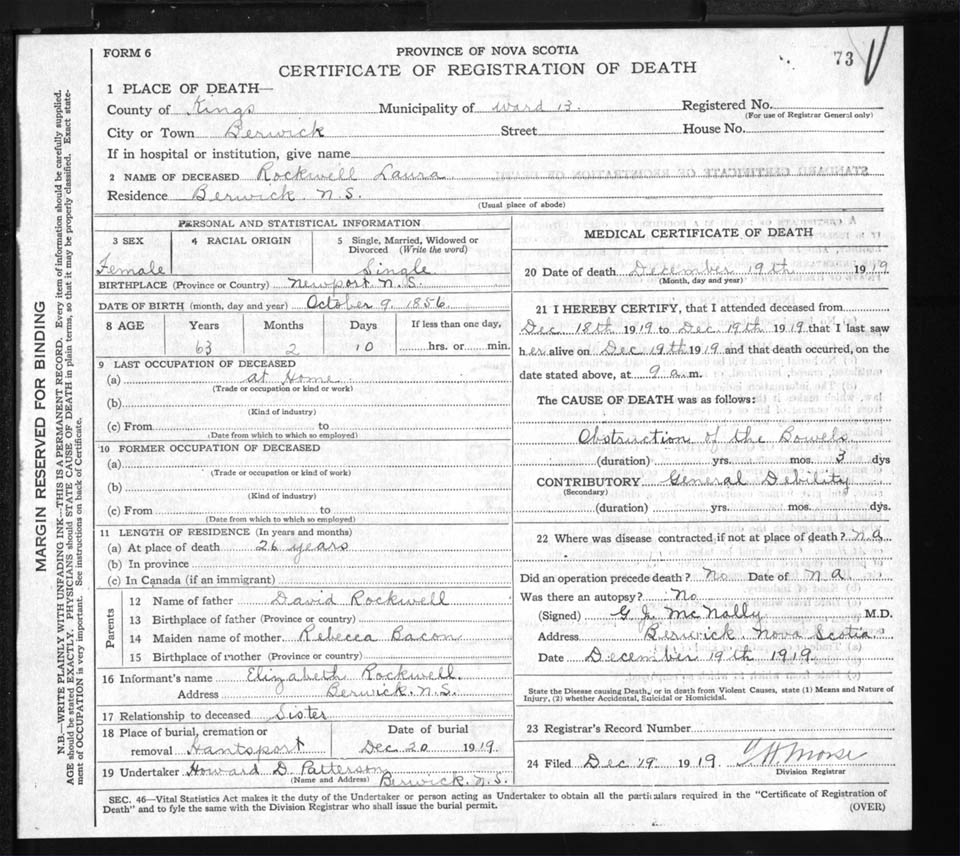 FORM 6
PROVINCE OF NOVA SCOTIA
73
CERTIFICATE OF REGISTRATION OF DEATH
1 PLACE OF DEATH—
County of Kings Municipality of Ward 13. Registered No.
(For use of Registrar General only)
City or Town Berwick Street House No.
If in hospital or institution, give name
2 NAME OF DECEASED Rockwell Laura
Residence Berwick N.S.
(Usual place of abode)
PERSONAL AND STATISTICAL INFORMATION
3 SEX 4 RACIAL ORIGIN 5 Single, Married, Widowed or Divorced (Write the word)
Female Single
BIRTHPLACE (Province or Country) Newport N.S.
DATE OF BIRTH (month, day and year) October 9. 1856.
8 AGE Years Months Days If less than one day,
63 2 10 hrs. or min.
9 LAST OCCUPATION OF DECEASED
(a) at Home
(Trade or occupation or kind of work)
(b)
(Kind of industry)
(c) From to
(Date from which to which so employed)
10 FORMER OCCUPATION OF DECEASED
(a)
(Trade or occupation or kind of work)
(b)
(Kind of industry)
(c) From to
(Date from which to which so employed)
11 LENGTH OF RESIDENCE (In years and months)
(a) At place of death 26 years
(b) In province
(c) In Canada (if an immigrant)
Parents
12 Name of father David Rockwell
13 Birthplace of father (Province or country)
14 Maiden name of mother Rebecca Bacon
15 Birthplace of mother (Province or country)
16 Informant's name Elizabeth Rockwell.
Address Berwick. N.S.
17 Relationship to deceased Sister
18 Place of burial, cremation or removal Hantsport Date of burial Dec 20 1919.
19 Undertaker Howard D. Patterson
(Name and Address) Berwick. N.S.
MEDICAL CERTIFICATE OF DEATH
20 Date of death December 19th 1919
(Month, day and year)
21 I HEREBY CERTIFY, that I attended deceased from
Dec 18th 1919 to Dec. 19th 1919 that I last saw
her alive on Dec 19th 1919 and that death occurred, on the
date stated above, at 9 a.m.
The CAUSE OF DEATH was as follows:
Obstruction of the Bowels
(duration) yrs. mos. 3 dys
CONTRIBUTORY General Debility
(Secondary)
(duration) yrs. mos. dys.
22 Where was disease contracted if not at place of death? N.A.
Did an operation precede death? No Date of N.A.
Was there an autopsy? No
(Signed) G. J. McNally M.D.
Address Berwick. Nova Scotia
Date December 19th 1919.
State the Disease causing Death, or in death from Violent Causes, state (1) Means and Nature of
Injury, (2) whether Accidental, Suicidal or Homicidal.
23 Registrar's Record Number
24 Filed Dec 19. 1919. Morse
Division Registrar
SEC. 46—Vital Statistics Act makes it the duty of the Undertaker or person acting as Undertaker to obtain all the particulars required in the "Certificate of Registration of
Death" and to fyle the same with the Division Registrar who shall issue the burial permit.
(OVER)
MARGIN RESERVED FOR BINDING
N.B.—WRITE PLAINLY WITH UNFADING INK—THIS IS A PERMANENT RECORD. Every item of information should be carefully supplied.
AGE should be stated EXACTLY. PHYSICIANS should STATE CAUSE OF DEATH in plain terms, so that it may be properly classified. Exact state-
ment of OCCUPATION is very important. See instructions on back of Certificate.